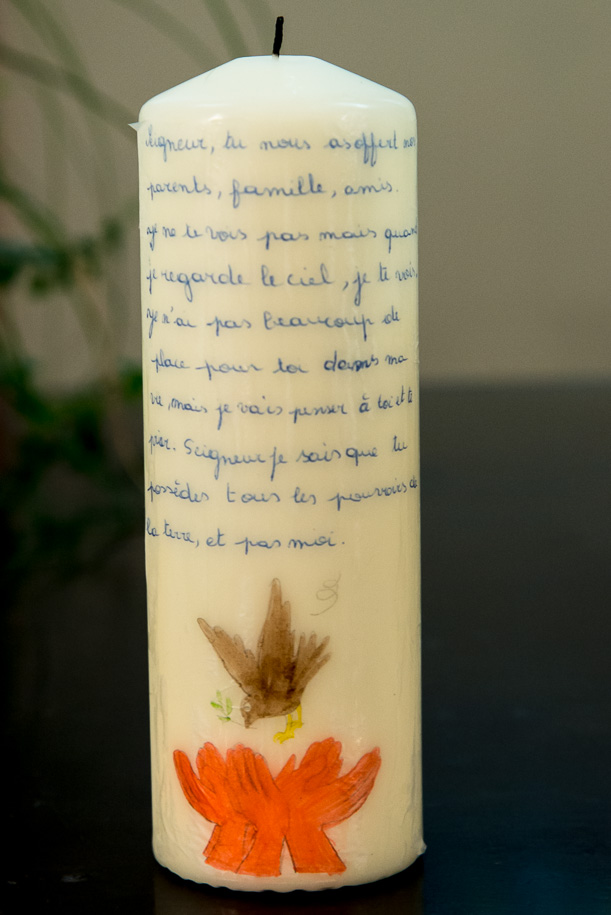 Seigneur, tu nous as offert nos
parents, famille, amis.
Je ne te vois pas mais quand
je regarde le ciel, je te vois,
Je n'ai pas beaucoup de
place pour toi dans ma
vie, mais je vais penser à toi et te
prier. Seigneur je sais que tu
possèdes tous les pouvoirs de
la terre, et pas moi.